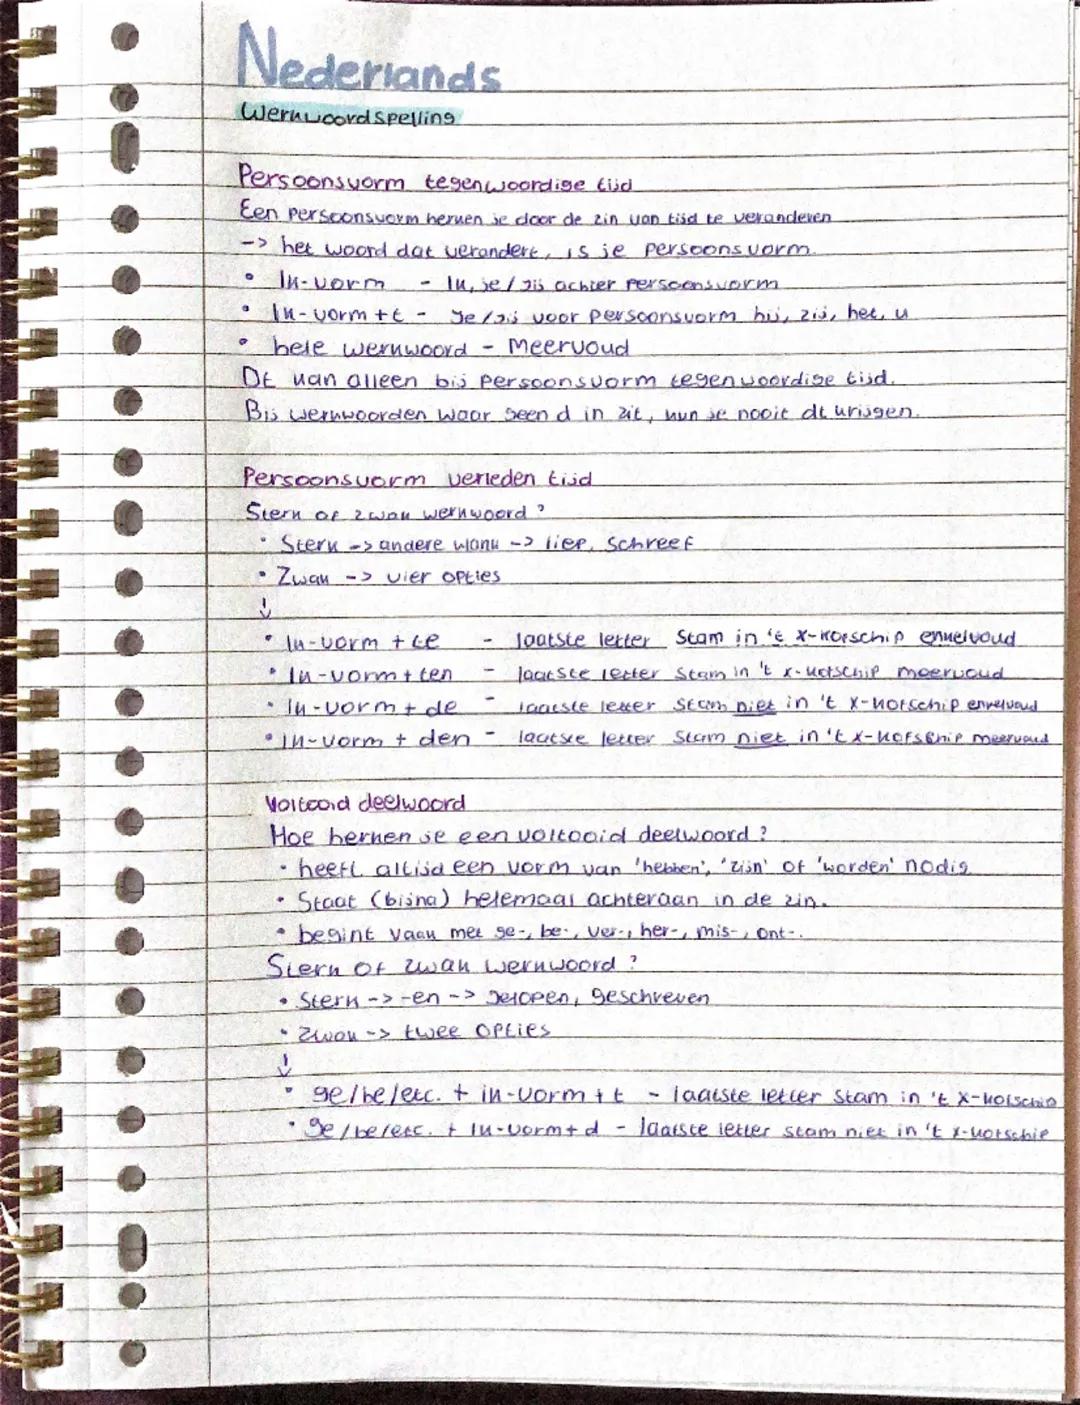 Nederlands
Werkwoordspelling
Persoonsvorm tegenwoordige tijd
Een persoonsvorm herken je door de zin van tijd te veranderen
-> het woord dat verandert, is je persoonsvorm.
• Ik-vorm - Ik, je/jij achter persoonsvorm
• Ik-vorm+t - Je/jij voor persoonsvorm hij, zij, het, u
• hele werkwoord - Meervoud
Dt kan alleen bij persoonsvorm tegenwoordige tijd.
Bij werkwoorden waar geen d in zit, kun je nooit dt krijgen.
Persoonsvorm verleden tijd
Sterk of zwak werkwoord?
• Sterk -> andere klank -> liep, schreef
• Zwak -> vier opties
↓
• Ik-vorm + te - laatste letter stam in 't x-kofschip enkelvoud
• Ik-vorm + ten - laatste letter stam in 't x-kofschip meervoud
• Ik-vorm + de - laatste letter stam niet in 't x-kofschip enkelvoud
• Ik-vorm + den - laatste letter stam niet in 't x-kofschip meervoud
Voltooid deelwoord
Hoe herken je een voltooid deelwoord?
• heeft altijd een vorm van 'hebben', 'zijn' of 'worden' nodig
• Staat (bijna) helemaal achteraan in de zin.
• begint vaak met ge-, be-, ver-, her-, mis-, ont-.
Sterk of zwak werkwoord?
• Sterk -> -en -> gelopen, geschreven
• Zwak -> twee opties
↓
• ge/be/etc. + ik-vorm + t - laatste letter stam in 't x-kofschip
• ge/be/etc. + ik-vorm + d - laatste letter stam niet in 't x-kofschip